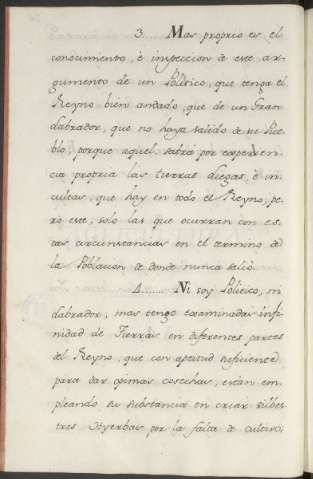 3...... Mas proprio es el
conocimiento, è inspeccion de este ar-
gumento de un Politico, que tenga el
Reyno bien andado, que de un Gran
Labrador, que no haya salido de su Pue-
blo; porque aquel sabrá por experien-
cia propria las tierras ... è in-
cultas, que hay en todo el Reyno, pe-
ro este, solo las que ocurran con es-
tas circunstancias en el termino de
la Poblacion de donde nunca salió.
4....... Ni soy Politico, ni
Labrador, mas tengo examinadas infi-
nidad de Tierras en diferentes partes
del Reyno, que con aptitud suficiente
para dar opimas cosechas, están em-
pleando su substancia en criar silbes-
tres Hyerbas por la falta de cultivo;